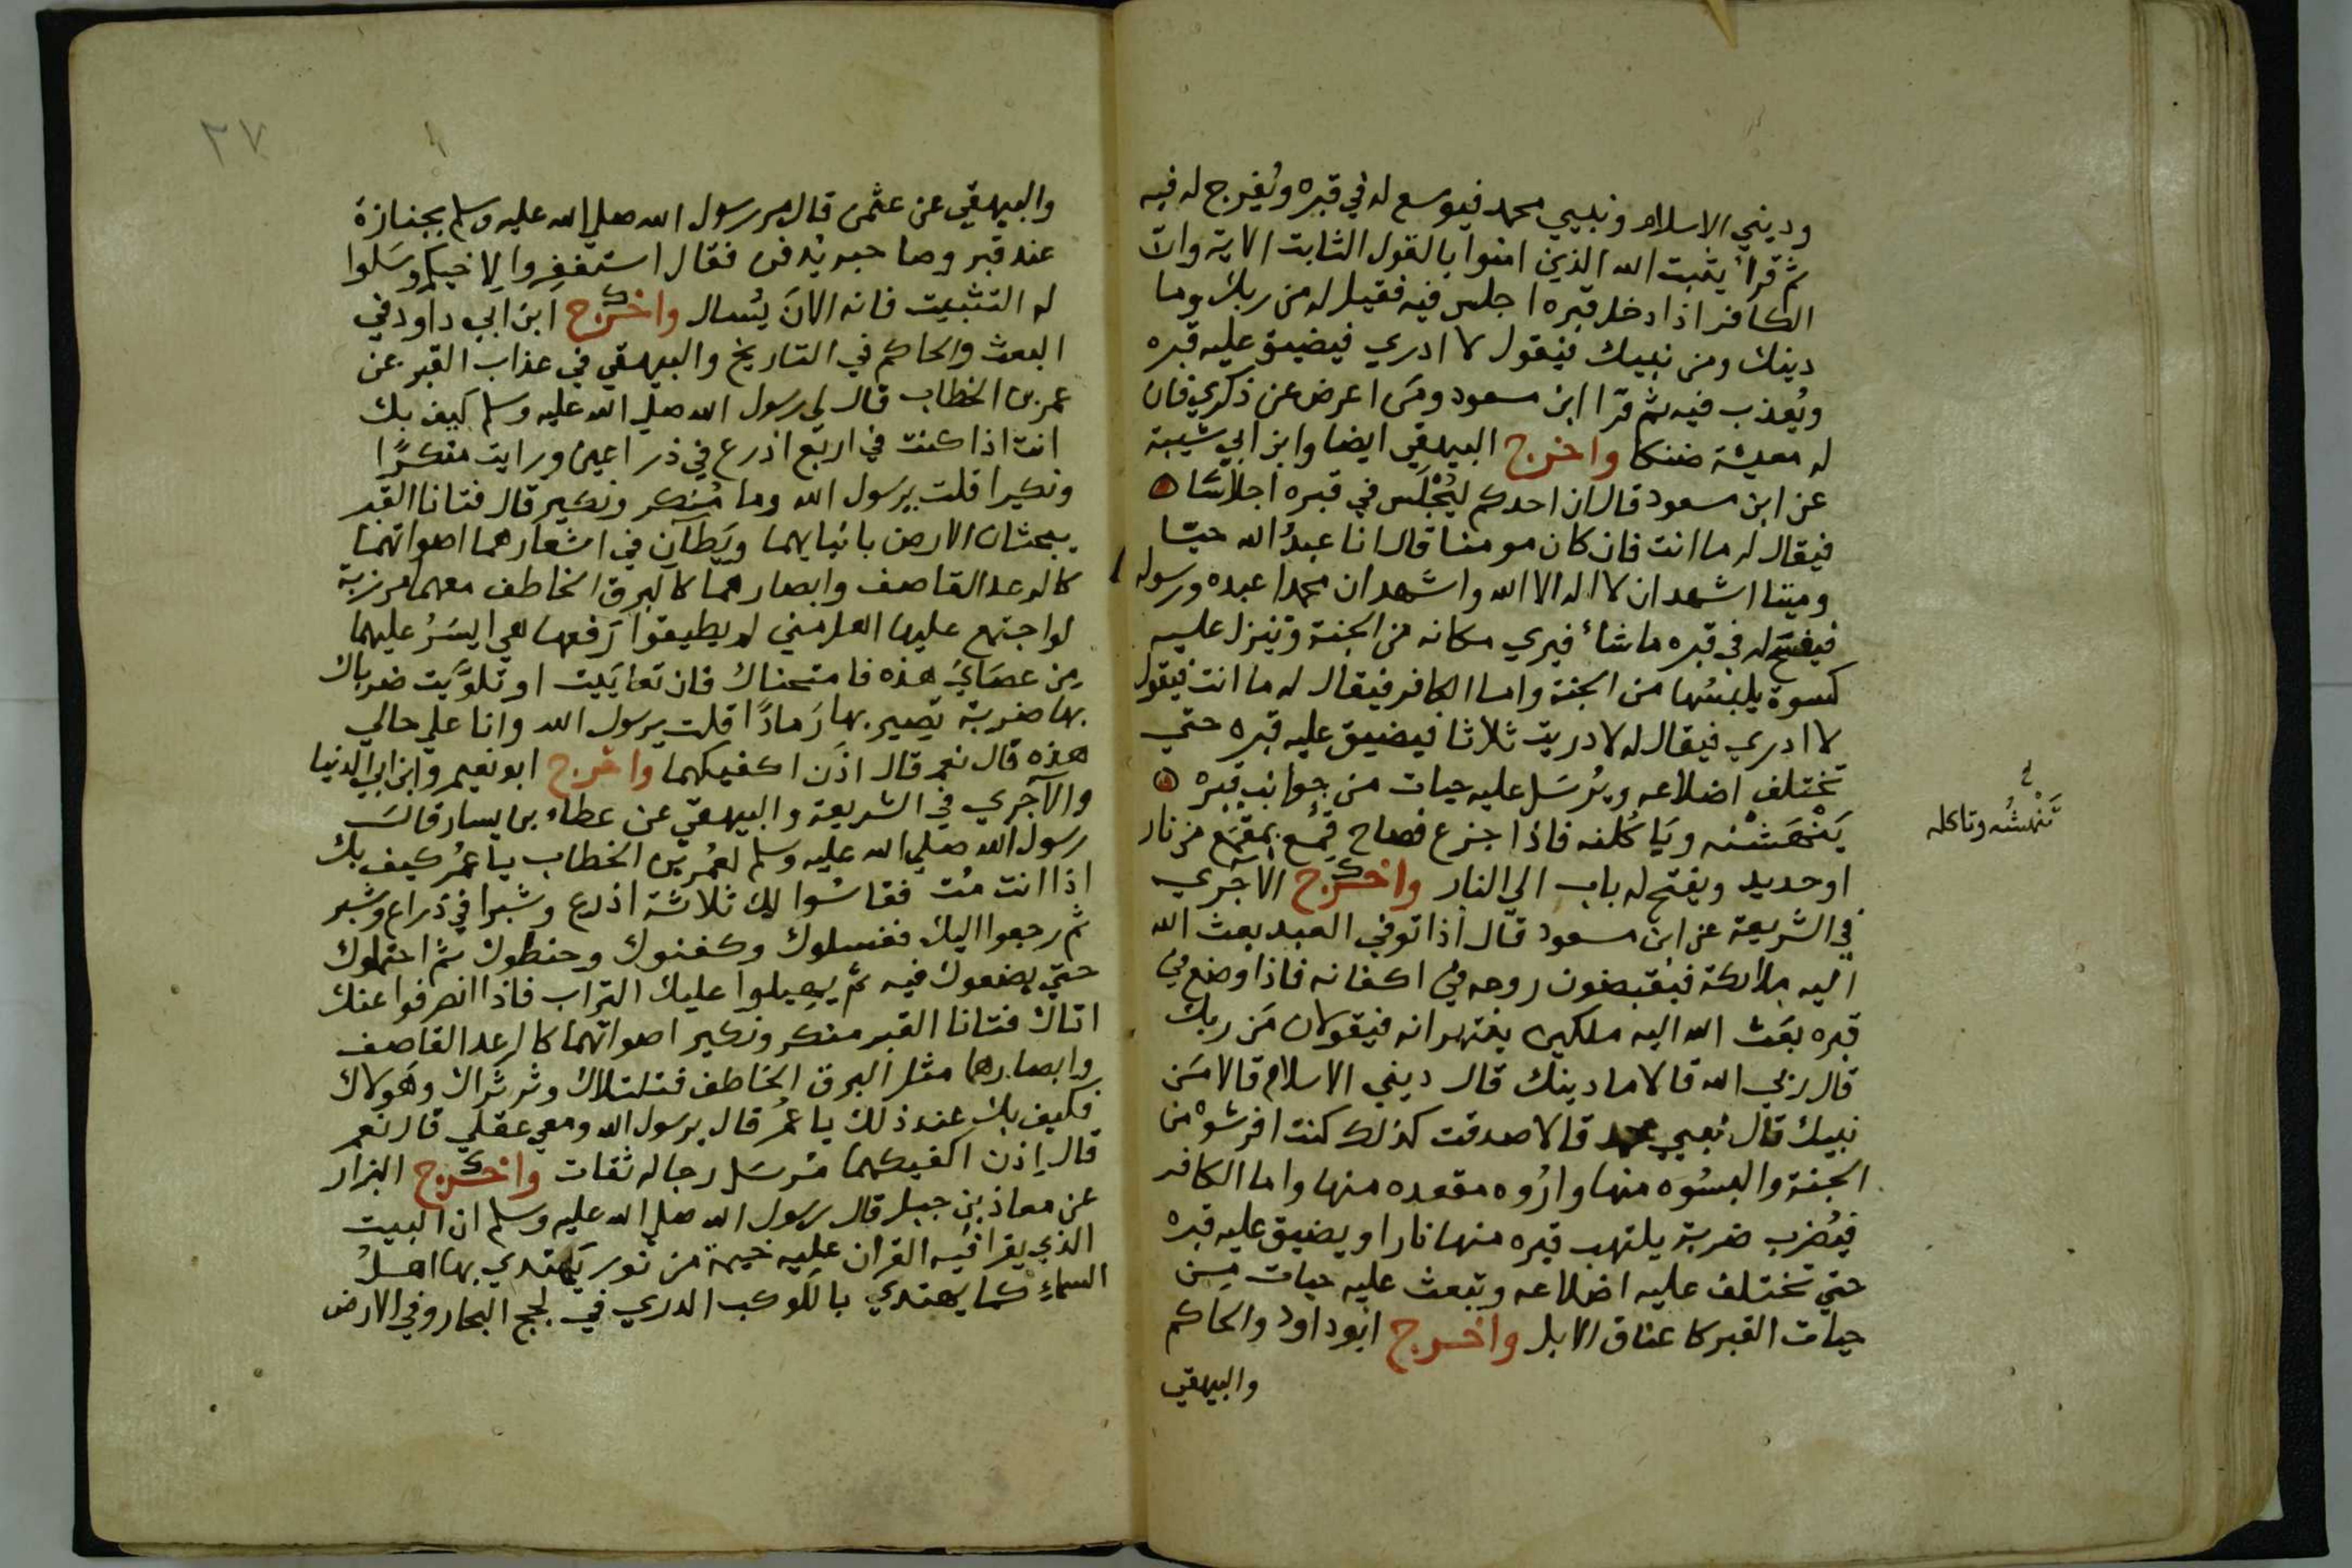 وديني الاسلام ونبيي محمد فيوسع له في قبره ويُفرج له فيه
ثم قرأ يثبت الله الذين امنوا بالقول الثابت الاية وان
الكافر اذا دخل قبره اجلس فيه فقيل له من ربك وما
دينك ومن نبيك فيقول لا ادري فيضيق عليه قبره
ويُعذب فيه ثم قرا ابن مسعود ومَن اعرض عن ذكري فان
له معيشة ضنكا واخرج البيهقي ايضا وابن ابي شيبة
عن ابن مسعود قال ان احدكم ليُجْلَس في قبره اجلاسًا
فيقال له ما انت فان كان مومنا قال انا عبدُ الله حيّا
وميتا اشهد ان لا اله الا الله واشهد ان محمدا عبده ورسوله
فيفتح له في قبره ماشاء فيري مكانه من الجنة وتنزل عليه
كسوة يلبسُها من الجنة واما الكافر فيقال له ما انت فيقول
لا ادري فيقال له لا دريت ثلاثا فيضيق عليه قبره حتي
تختلف اضلاعه ويُرسَل عليه حيات من جوانب قبره
يَنْهَشْنه ويَاكُلنه فاذا جزع فصاح قُمِع بمِقمَع من نار
تَنْهشُه وتاكله
او حديد ويفتح له باب الي النار واخرج الآجري
في الشريعة عن ابن مسعود قال اذا توفي العبد بعث الله
اليه ملائكة فيقبضون روحه في اكفانه فاذا وضع في
قبره بَعَث الله اليه ملكين ينتهرانه فيقولان مَن ربك
قال ربي الله قالا ما دينك قال ديني الاسلام قالا مَن
نبيك قال نبيي محمد قالا صدقت كذلك كنت افرشوْه من
الجنة والبسُوه منها وارُوه مقعده منها واما الكافر
فيُضرب ضربة يلتهب قبره منها نارا ويضيق عليه قبره
حتي تختلف عليه اضلاعه وتبعث عليه حيات من
حيات القبر كاعناق الابل واخرج ابوداود والحاكم
والبيهقي
٢٧
والبيهقي عن عثمن قال مر رسول الله صلي الله عليه وسلم بجنازة
عند قبر وصاحبه يُدفن فقال استغفِروا لاخيكم وسَلوا
له التثبيت فانه الانَ يُسال واخرج ابن ابي داود في
البعث والحاكم في التاريخ والبيهقي في عذاب القبر عن
عمر بن الخطاب قال لي رسول الله صلي الله عليه وسلم كيف بك
انت اذا كنت في اربع اذرع في ذراعين ورايت منكرًا
ونكيرا قلت يرسَول الله وما مُنكر ونكير قال فتانا القبر
يبحثان الارض بانيابهما ويَطآن في اشعارهما اصواتهما
كالرعد القاصف وابصارهما كالبرق الخاطف معهما مرزبة
لو اجتمع عليها اهل مِني لم يطيقوا رَفعها هي ايسَرُ عليهما
مِن عصَايَ هذه فامتحناك فان تعايَيت او تلوَّيت ضرباك
بها ضربة تصير بها رَمادًا قلت يرسول الله وانا علي حالي
هذه قال نعم قال اذَن اكفيكهما واخرج ابو نعيم وابن ابي الدنيا
والآجري في الشريعة والبيهقي عن عطاء بن يسار قال
رسول الله صلي الله عليه وسلم لعُمر بن الخطاب يا عمُر كيف بك
اذا انت مُت فقاسُوا لك ثلاثة اذرع وشبرا في ذراع وشبر
ثم رجعوا اليك فغسلوك وكفنوك وحنطوك ثم احتملوك
حتي يضعوك فيه ثم يهيلوا عليك التراب فاذا انصرفوا عنك
اتاك فتانا القبر منكر ونكير اصواتهما كالرعد القاصف
وابصارهما مثل البرق الخاطف فتلتلاك وثرثراك وهَولاك
فكيف بك عند ذلك يا عمُر قال يرسول الله ومعي عقلي قال نعم
قال إذن اكفيكهما مُرسَل رجاله ثقات واخرج البزار
عن معاذ بن جبل قال رسول الله صلي الله عليه وسلم ان البيت
الذي يقرا فيه القران عليه خيمة من نور يَهتدي بها اهلُ
السماءِ كما يهتدي بالكوكب الدري في لجج البحار وفي الارض